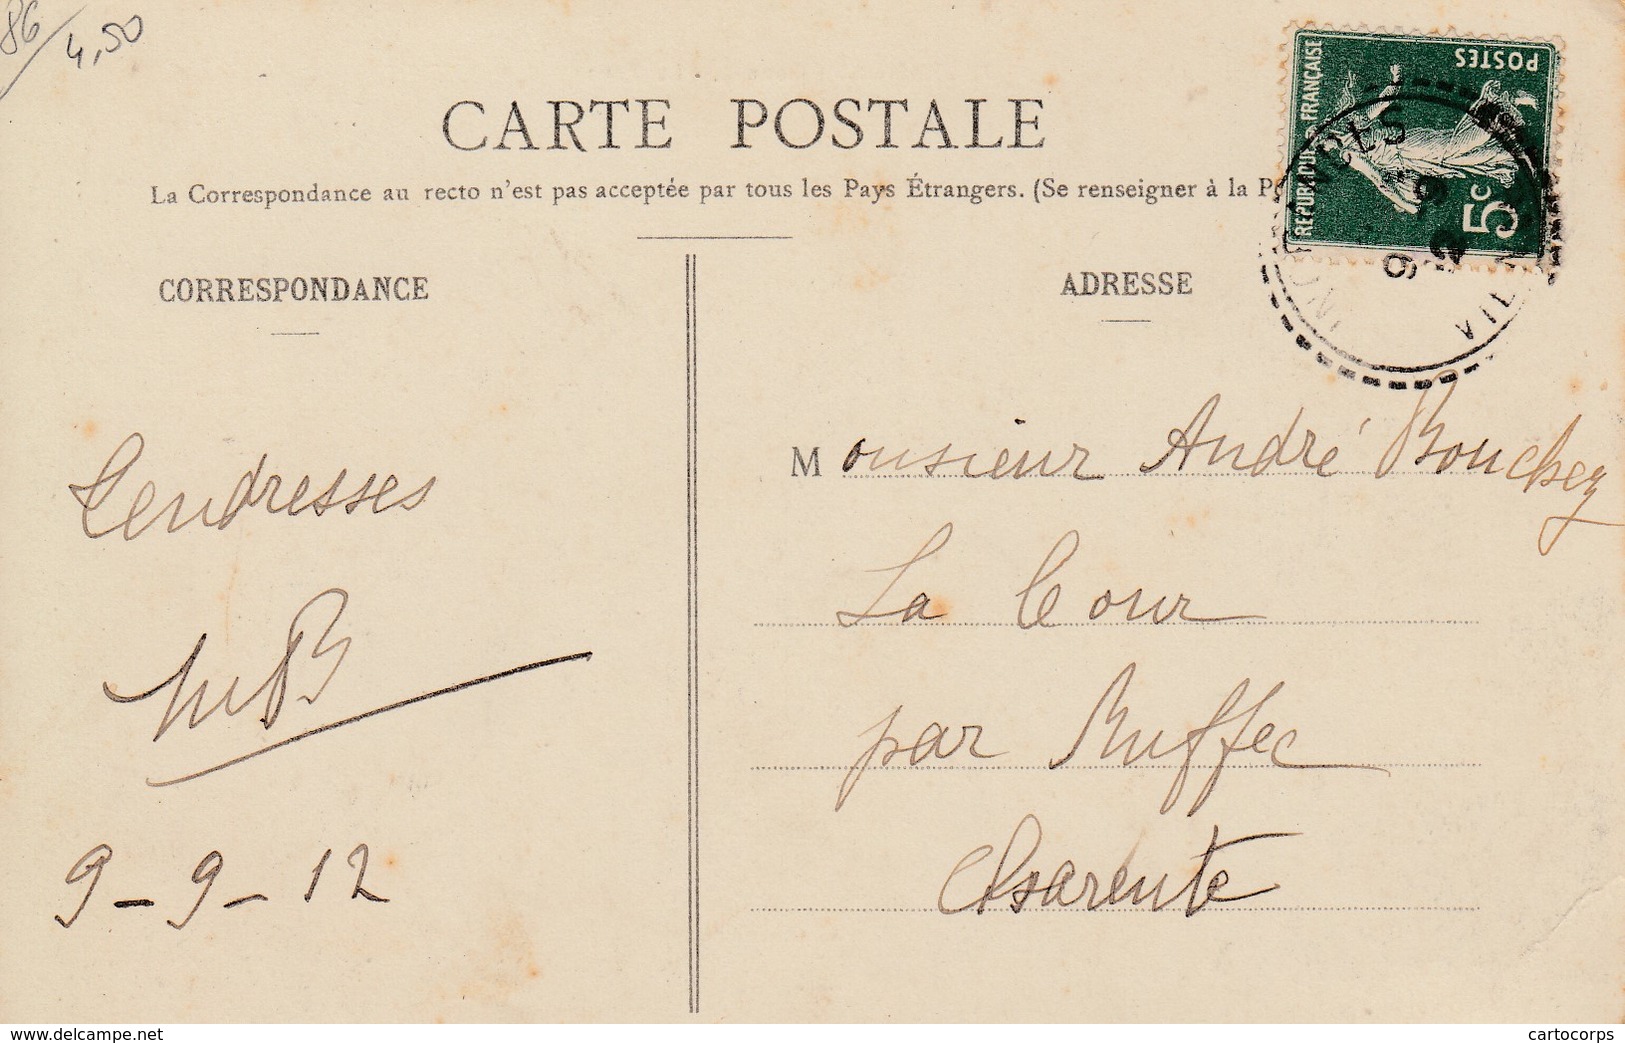 86/4,50
CARTE POSTALE
La Correspondance au recto n'est pas acceptée par tous les Pays Étrangers. (Se renseigner à la P
CORRESPONDANCE
ADRESSE
REPUBLIQUE FRANÇAISE
POSTES
5c
9
9
12
Tendresses
MB
9-9-12
Monsieur André Bouchez
La Cour
par Ruffec
Charente
www.delcampe.net
cartocorps